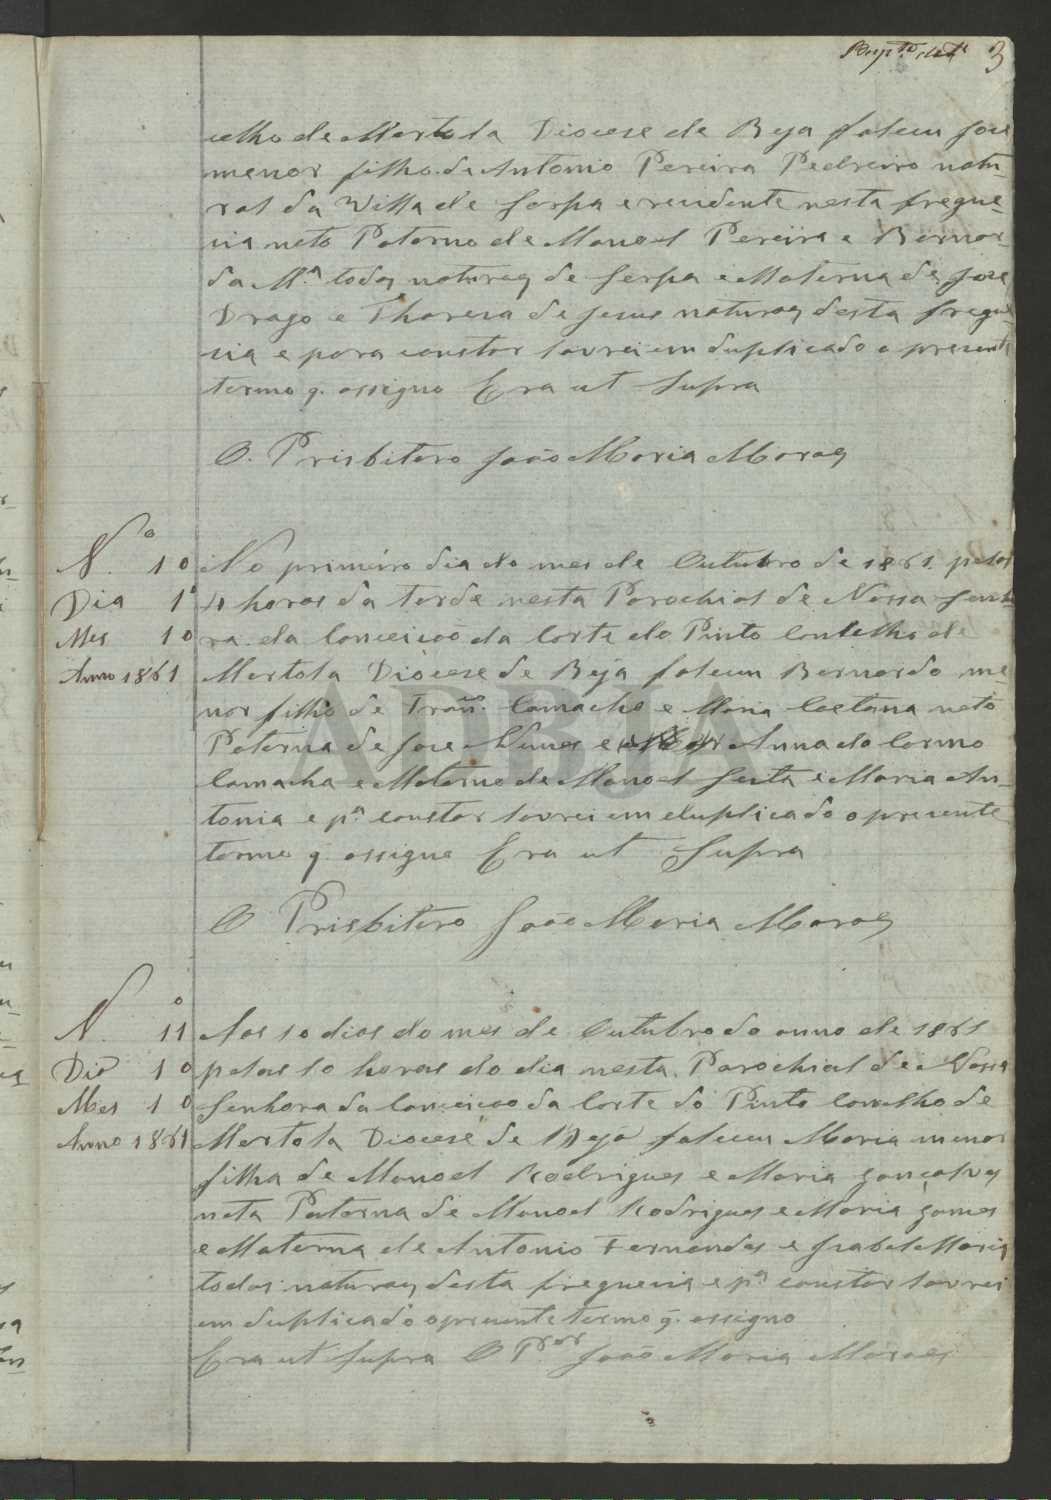 3
celho de Mertola Diocese de Beja faleceu Jose
menor filho de Antonio Pereira Pedreiro natu-
ral da Villa de Serpa e rezidente nesta fregue-
sia neto Paterno de Manoel Pereira e Bernar-
da M.ª todos naturaes de Serpa e Materna de Jose
Drago e Thereza de Jesus naturaes desta fregue-
sia e para constar lavrei em duplicado o presente
termo q. assigno Era ut Supra
O. Prisbitero João Maria Moraes
N.º 10
Dia 1º
Mes 10
Anno 1861
No primeiro dia do mes de Outubro de 1861 pelas
4 horas da tarde nesta Parochial de Nossa Senho
ra da Conceicaõ da Corte do Pinto Concelho de
Mertola Diocese de Beja faleceu Bernardo me-
nor filho de Fran.co Camacho e Maria Caetana neto
Paterna de Jose Nunes e Anna do Carmo
Camacha e Materno de Manoel Sesta e Maria An-
tonia e p.ª constar lavrei em duplicado o presente
termo q. assigno Era ut Supra
O Prisbitero João Maria Moraes
N.º 11
Dia 10
Mes 10
Anno 1861
Aos 10 dias do mes de Outubro do anno de 1861
pelas 10 horas do dia nesta Parochial de Nossa
Senhora da Conceicao da Corte do Pinto Concelho de
Mertola Diocese de Beja faleceu Maria menor
filha de Manoel Rodrigues e Maria Gonçalves
neta Paterna de Manoel Rodrigues e Maria Gomes
e Materna de Antonio Fernandes e Isabel Maria
todos naturaes desta freguesia e p.ª constar lavrei
em duplicado o presente termo q. assigno
Era ut Supra O P.or João Maria Moraes
ADBJA